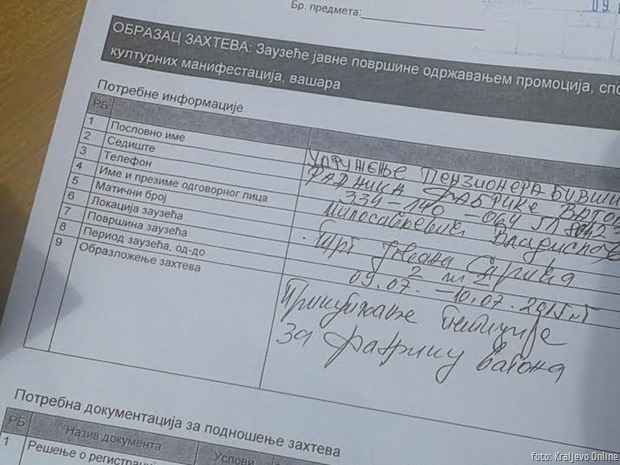 09.
Бр. предмета:
ОБРАЗАЦ ЗАХТЕВА: Заузеће јавне површине одржавањем промоција, спо
културних манифестација, вашара
Потребне информације
РБ
1 Пословно име УДРУЖЕЊЕ ПЕНЗИОНЕРА БИВШИ
2 Седиште РАДНИКА ФАБРИКЕ ВАГО
3 Телефон 334-140 -064
4 Име и презиме одговорног лица Милосављевић
5 Матични број
6 Локација заузећа Трг Јована Сарића
7 Површина заузећа 2 м 2
8 Период заузећа, од-до 09.07. -10.07.2015
9 Образложење захтева петиције
за фабрику вагона
Потребна документација за подношење захтева
РБ Назив документа Услови
1 Решење о регистрациј
foto: Kraljevo Online